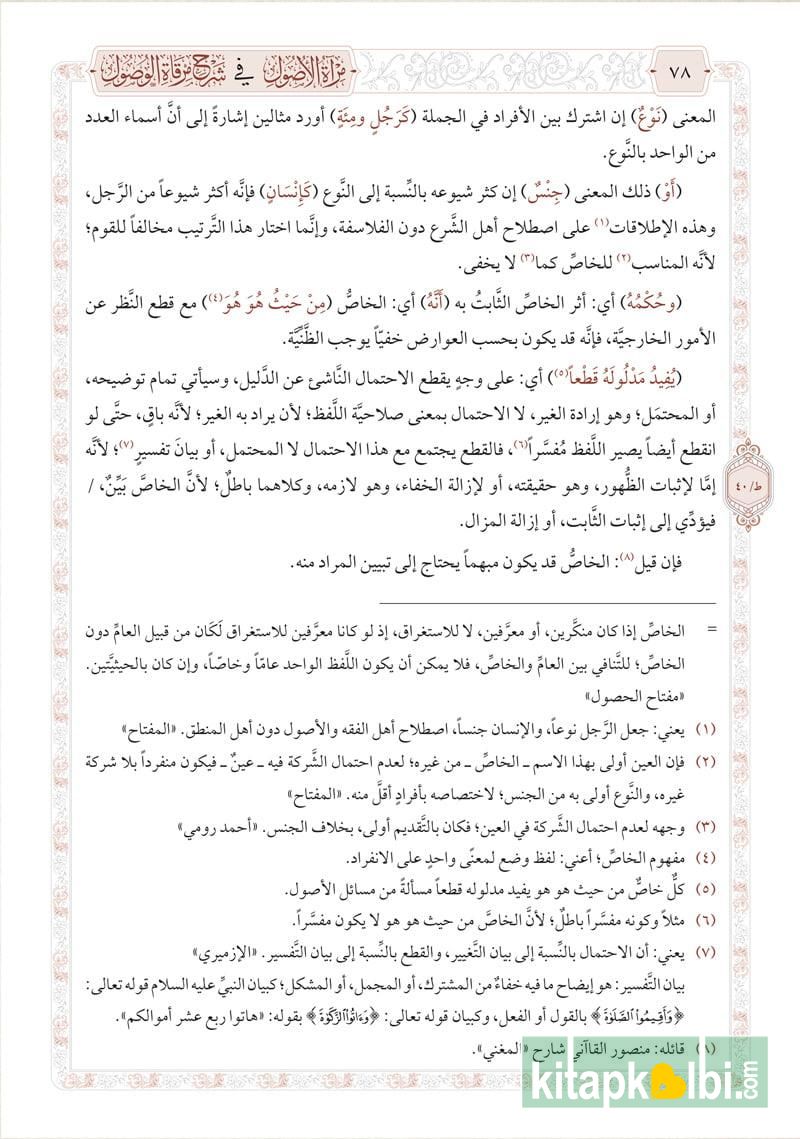 ٧٨
مرآة الأصول في شرح مرقاة الوصول
المعنى (نَوْعٌ) إن اشترك بين الأفراد في الجملة (كَرَجُلٍ ومِئَةٍ) أورد مثالين إشارةً إلى أنَّ أسماء العدد
من الواحد بالنَّوع.
(أَوْ) ذلك المعنى (جِنْسٌ) إن كثر شيوعه بالنِّسبة إلى النَّوع (كَإِنْسَانٍ) فإنَّه أكثر شيوعاً من الرَّجل،
وهذه الإطلاقات(١) على اصطلاح أهل الشَّرع دون الفلاسفة، وإنَّما اختار هذا التَّرتيب مخالفاً للقوم؛
لأنَّه المناسب(٢) للخاصِّ كما(٣) لا يخفى.
(وحُكْمُهُ) أي: أثر الخاصِّ الثَّابتُ به (أَنَّهُ) أي: الخاصُّ (مِنْ حَيْثُ هُوَ هُوَ(٤)) مع قطع النَّظر عن
الأمور الخارجيَّة، فإنَّه قد يكون بحسب العوارض خفيّاً يوجب الظَّنِّيَّة.
(يُفِيدُ مَدْلُولَهُ قَطْعاً(٥)) أي: على وجهٍ يقطع الاحتمال النَّاشئ عن الدَّليل، وسيأتي تمام توضيحه،
أو المحتمَل؛ وهو إرادة الغير، لا الاحتمال بمعنى صلاحيَّة اللَّفظ؛ لأن يراد به الغير؛ لأنَّه باقٍ، حتَّى لو
انقطع أيضاً يصير اللَّفظ مُفسَّراً(٦)، فالقطع يجتمع مع هذا الاحتمال لا المحتمل، أو بيانَ تفسيرٍ(٧)؛ لأنَّه
إمَّا لإثبات الظُّهور، وهو حقيقته، أو لإزالة الخفاء، وهو لازمه، وكلاهما باطلٌ؛ لأنَّ الخاصَّ بَيِّنٌ، /
ط/٤٠
فيؤدِّي إلى إثبات الثَّابت، أو إزالة المزال.
فإن قيل(٨): الخاصُّ قد يكون مبهماً يحتاج إلى تبيين المراد منه.
= الخاصِّ إذا كان منكَّرين، أو معرَّفين، لا للاستغراق، إذ لو كانا معرَّفين للاستغراق لَكَان من قبيل العامِّ دون
الخاصِّ؛ للتَّنافي بين العامِّ والخاصِّ، فلا يمكن أن يكون اللَّفظ الواحد عامّاً وخاصّاً، وإن كان بالحيثيَّتين.
«مفتاح الحصول»
(١) يعني: جعل الرَّجل نوعاً، والإنسان جنساً، اصطلاح أهل الفقه والأصول دون أهل المنطق. «المفتاح»
(٢) فإن العين أولى بهذا الاسم ـ الخاصِّ ـ من غيره؛ لعدم احتمال الشَّركة فيه ـ عينٌ ـ فيكون منفرداً بلا شركة
غيره، والنَّوع أولى به من الجنس؛ لاختصاصه بأفرادٍ أقلَّ منه. «المفتاح»
(٣) وجهه لعدم احتمال الشَّركة في العين؛ فكان بالتَّقديم أولى، بخلاف الجنس. «أحمد رومي»
(٤) مفهوم الخاصِّ؛ أعني: لفظ وضع لمعنًى واحدٍ على الانفراد.
(٥) كلُّ خاصٍّ من حيث هو هو يفيد مدلوله قطعاً مسألةٌ من مسائل الأصول.
(٦) مثلاً وكونه مفسَّراً باطلٌ؛ لأنَّ الخاصَّ من حيث هو هو لا يكون مفسَّراً.
(٧) يعني: أن الاحتمال بالنِّسبة إلى بيان التَّغيير، والقطع بالنِّسبة إلى بيان التَّفسير. «الإزميري»
بيان التَّفسير: هو إيضاح ما فيه خفاءٌ من المشترك، أو المجمل، أو المشكل؛ كبيان النبيِّ عليه السلام قوله تعالى:
﴿وَأَقِيمُواْ ٱلصَّلَوٰةَ﴾ بالقول أو الفعل، وكبيان قوله تعالى: ﴿وَءَاتُواْ ٱلزَّكَوٰةَ﴾ بقوله: «هاتوا ربع عشر أموالكم».
(٨) قائله: منصور القاآني شارح «المغني».
kitapkalbi.com